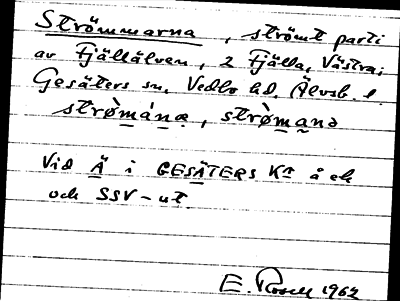 Strömmarna, strömt parti
av Fjällälven, 2 Fjälla, Västra;
Gesäters sn, Vedbo hd, Älvsb. l.
strø̀mána, strø̀manə
Vid Ä i GESÄTERS Kn å ek
och SSV-ut
E. Rosell 1962